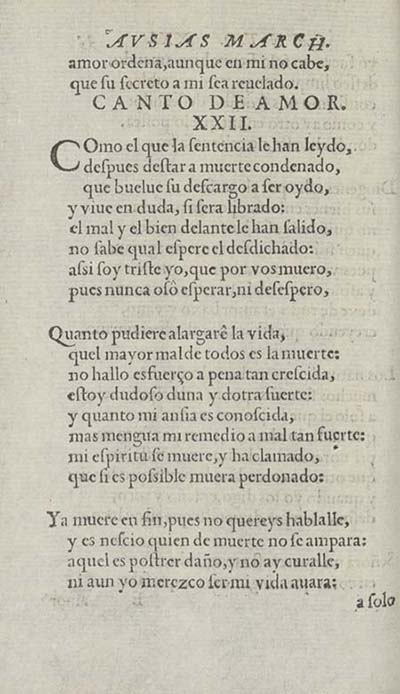 AVSIAS MARCH.
amor ordena, aunque en mi no cabe,
que su secreto a mi sea reuelado.
CANTO DE AMOR.
XXII.
COmo el que la sentencia le han leydo,
despues destar a muerte condenado,
que buelue su descargo a ser oydo,
y viue en duda, si sera librado:
el mal y el bien delante le han salido,
no sabe qual espere el desdichado:
assi soy triste yo, que por vos muero,
pues nunca osô esperar, ni desespero,
Quanto pudiere alargarê la vida,
quel mayor mal de todos es la muerte:
no hallo esfuerço a pena tan crescida,
estoy dudoso duna y dotra suerte:
y quanto mi ansia es conoscida,
mas mengua mi remedio a mal tan fuerte:
mi espiritu se muere, y ha clamado,
que si es possible muera perdonado:
Ya muere en fin, pues no quereys hablalle,
y es nescio quien de muerte no se ampara:
aquel es postrer daño, y no ay curalle,
ni aun yo merezco ser mi vida auara:
a solo